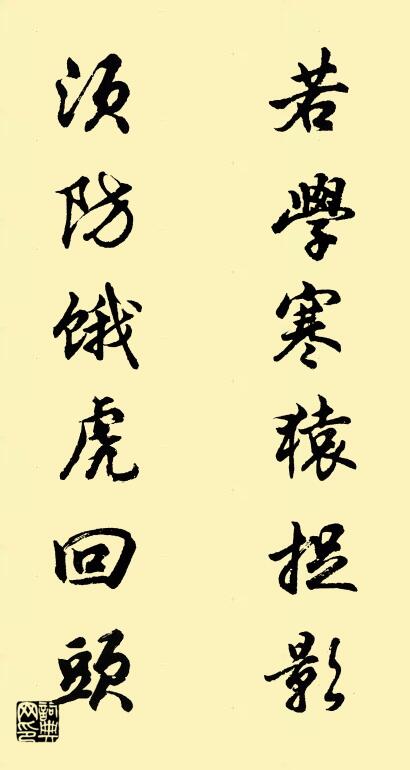 若學寒猿捉影
須防餓虎回頭
詞典網印